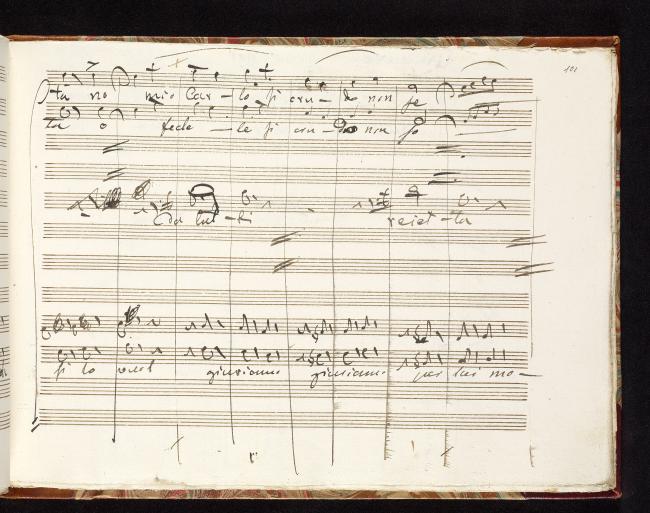 101
ta no mio Car-lo si cru-do non
ta o fede-le si cru-do non
Da tut-ti reiet-ta
si lo vuol giuriamo giuriamo per lui mo-